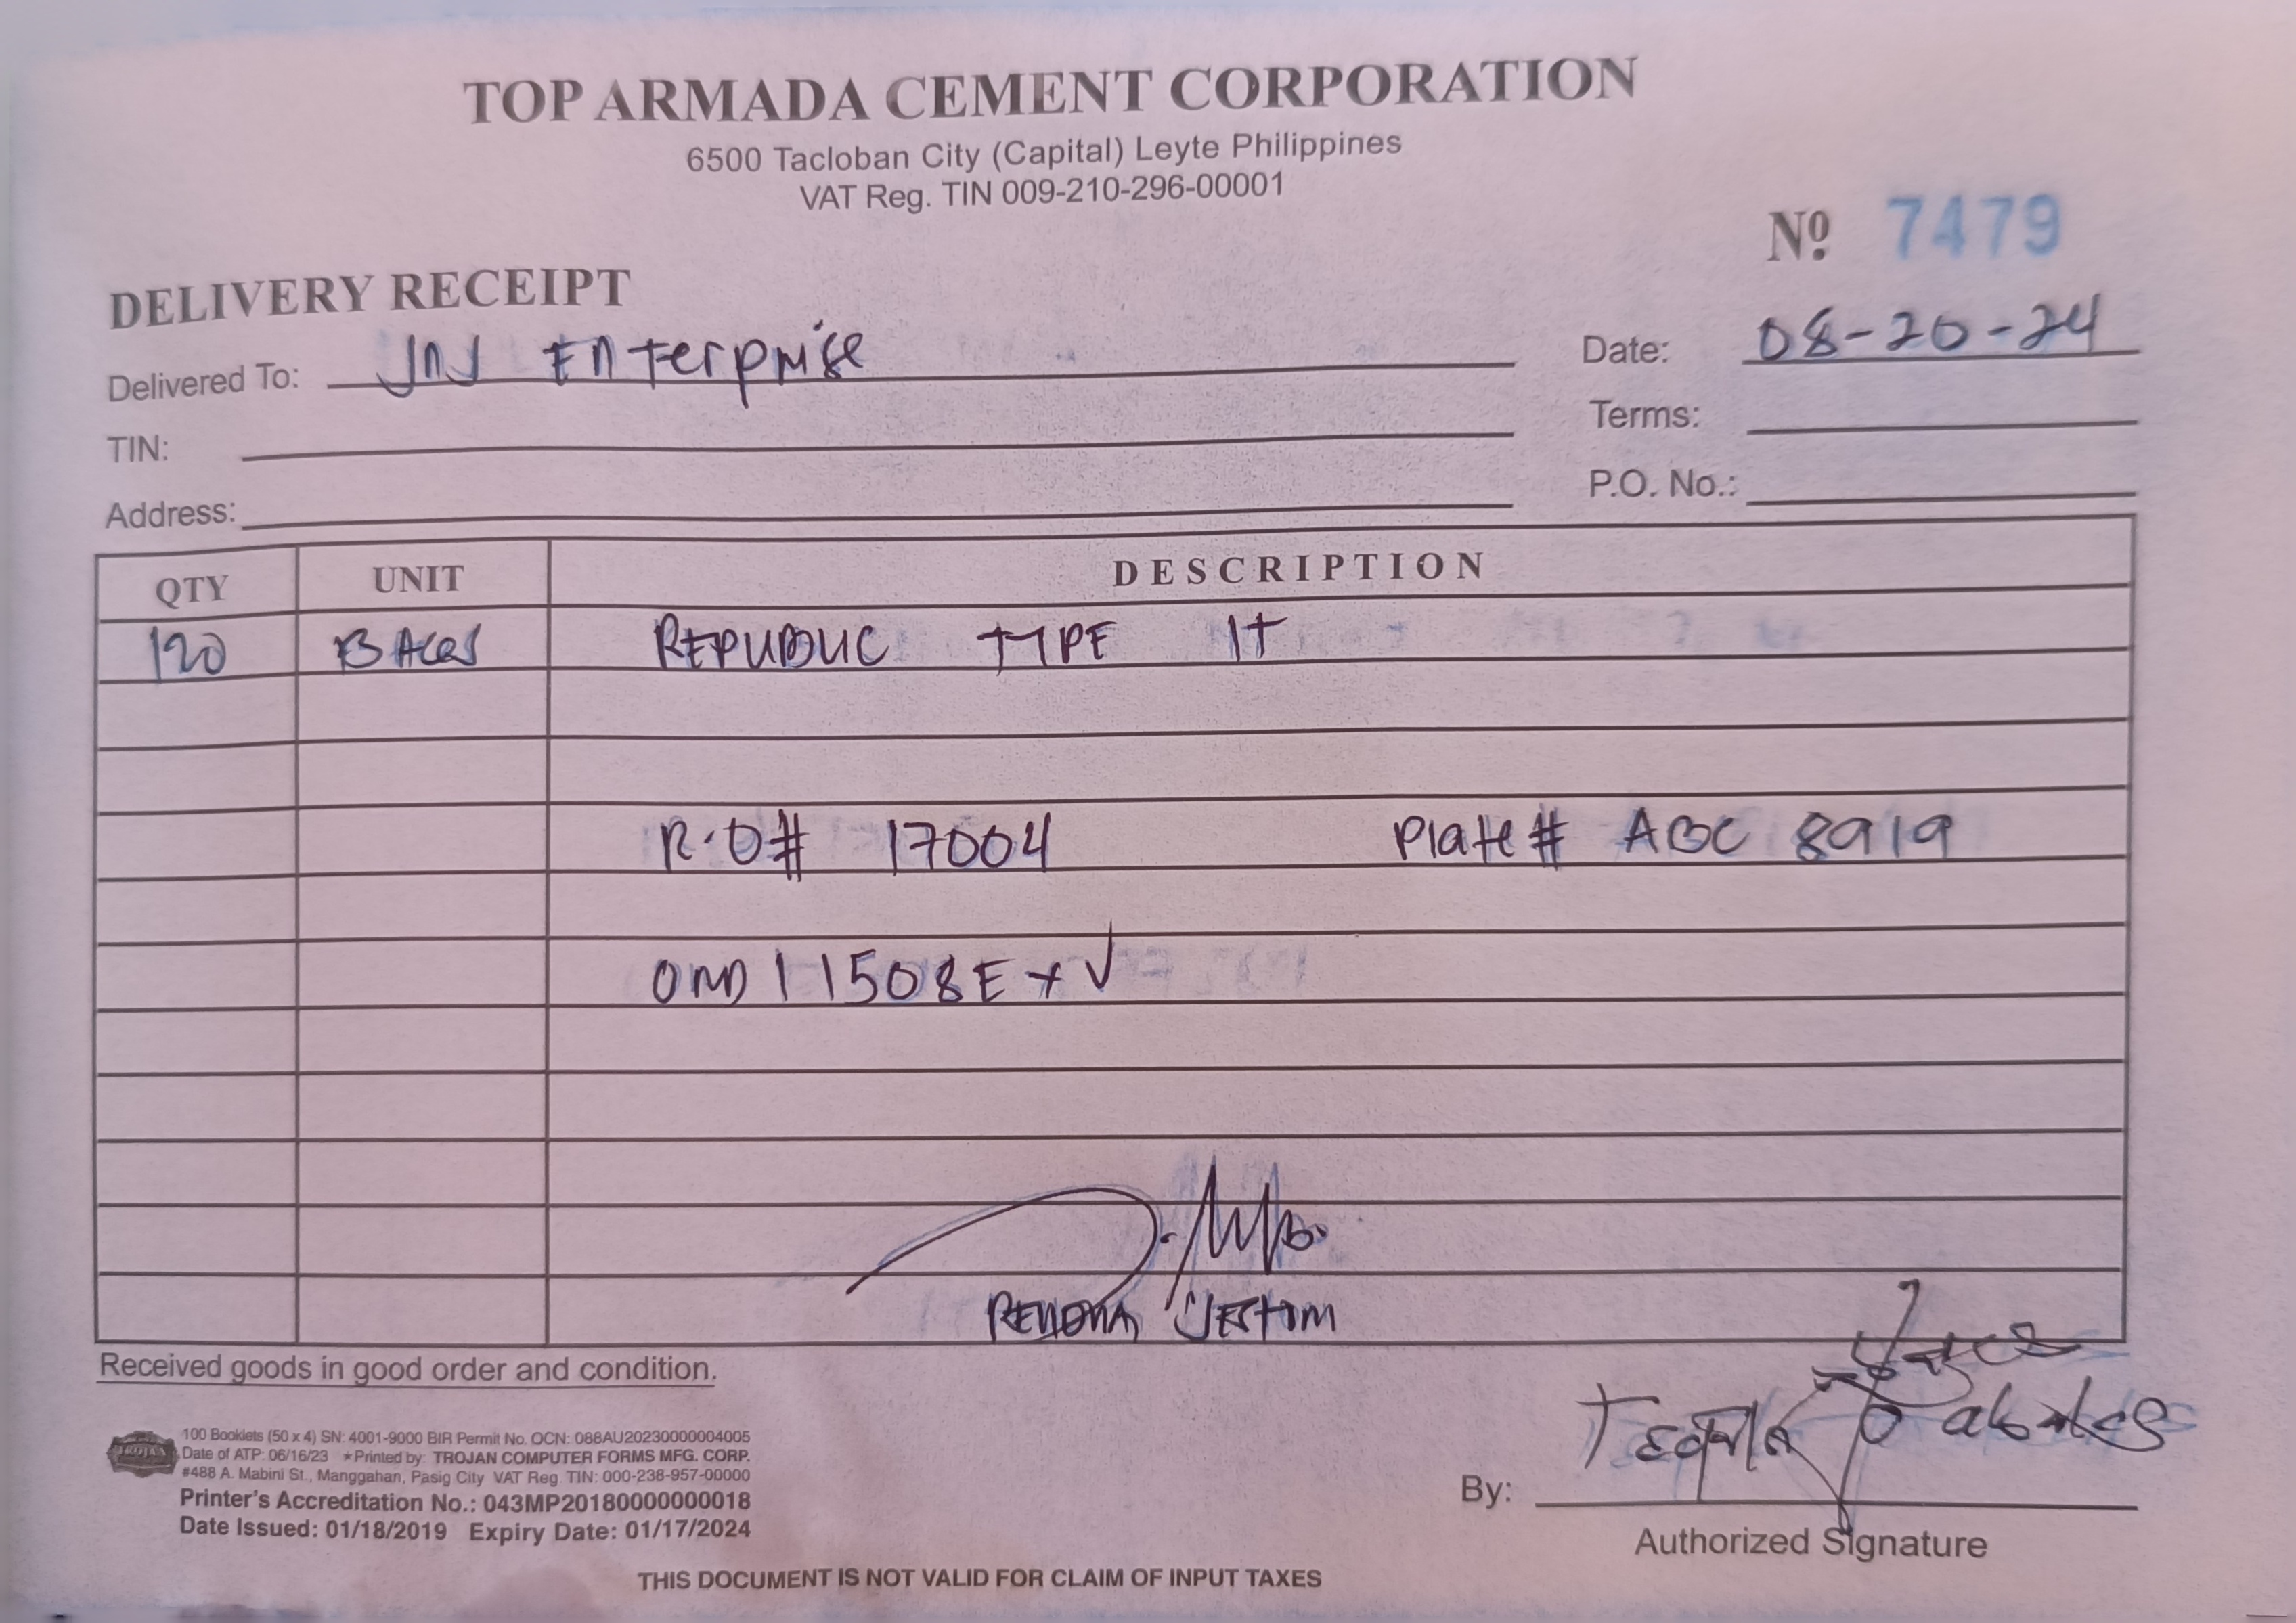 TOP ARMADA CEMENT CORPORATION
6500 Tacloban City (Capital) Leyte Philippines
VAT Reg. TIN 009-210-296-00001
Nº 7479
DELIVERY RECEIPT
Delivered To: JNJ Enterprise
Date: 08-20-24
TIN:
Terms:
Address:
P.O. No.:
QTY UNIT DESCRIPTION
120 BAGS REPUBLIC TYPE 1T
R.O# 17004 Plate# ABC 8919
11508E +
Received goods in good order and condition.
TROJAN
100 Booklets (50 x 4) SN: 4001-9000 BIR Permit No. OCN: 088AU20230000004005
Date of ATP: 06/16/23 ★Printed by: TROJAN COMPUTER FORMS MFG. CORP.
#488 A. Mabini St., Manggahan, Pasig City VAT Reg. TIN: 000-238-957-00000
Printer's Accreditation No.: 043MP20180000000018
Date Issued: 01/18/2019 Expiry Date: 01/17/2024
By:
Authorized Signature
THIS DOCUMENT IS NOT VALID FOR CLAIM OF INPUT TAXES